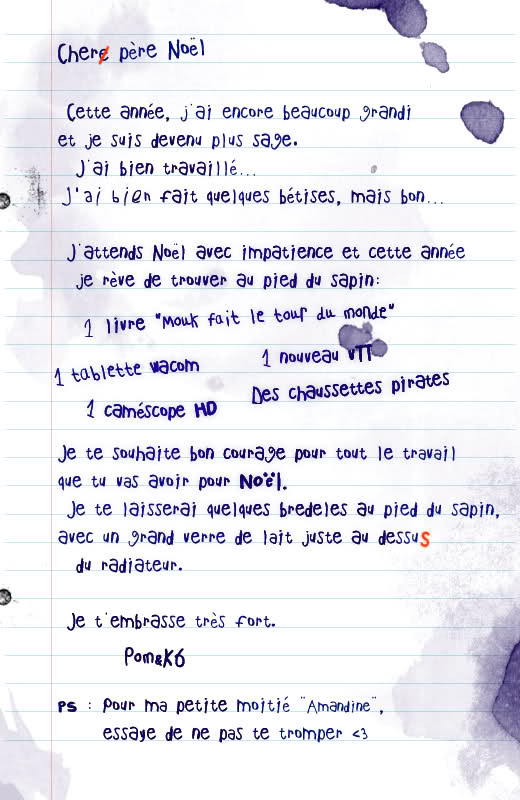 Chere père Noël
Cette année, j'ai encore beaucoup grandi
et je suis devenu plus sage.
J'ai bien travaillé...
J'ai bien fait quelques bétises, mais bon...
J'attends Noël avec impatience et cette année
je rève de trouver au pied du sapin:
1 livre "Mouk fait le tour du monde"
1 tablette wacom
1 nouveau VTT
1 caméscope HD
Des chaussettes pirates
Je te souhaite bon courage pour tout le travail
que tu vas avoir pour Noël.
Je te laisserai quelques bredeles au pied du sapin,
avec un grand verre de lait juste au dessus
du radiateur.
Je t'embrasse très fort.
Pom&K6
PS : Pour ma petite moitié "Amandine",
essaye de ne pas te tromper <3